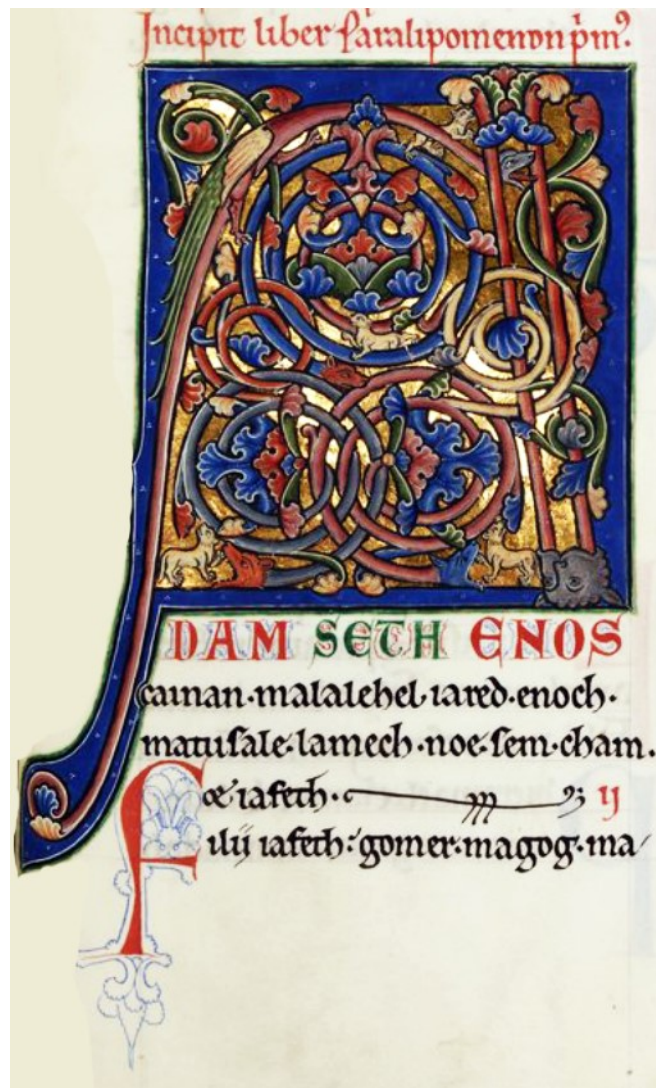 Incipit liber paralipomenon pͥmꝰ.
A
DAM SETH ENOS
cainan·malalehel·iared·enoch·
matusale·lamech·noe·sem·cham.
et iafeth· ij
Filij iafeth: gomer·magog·ma/